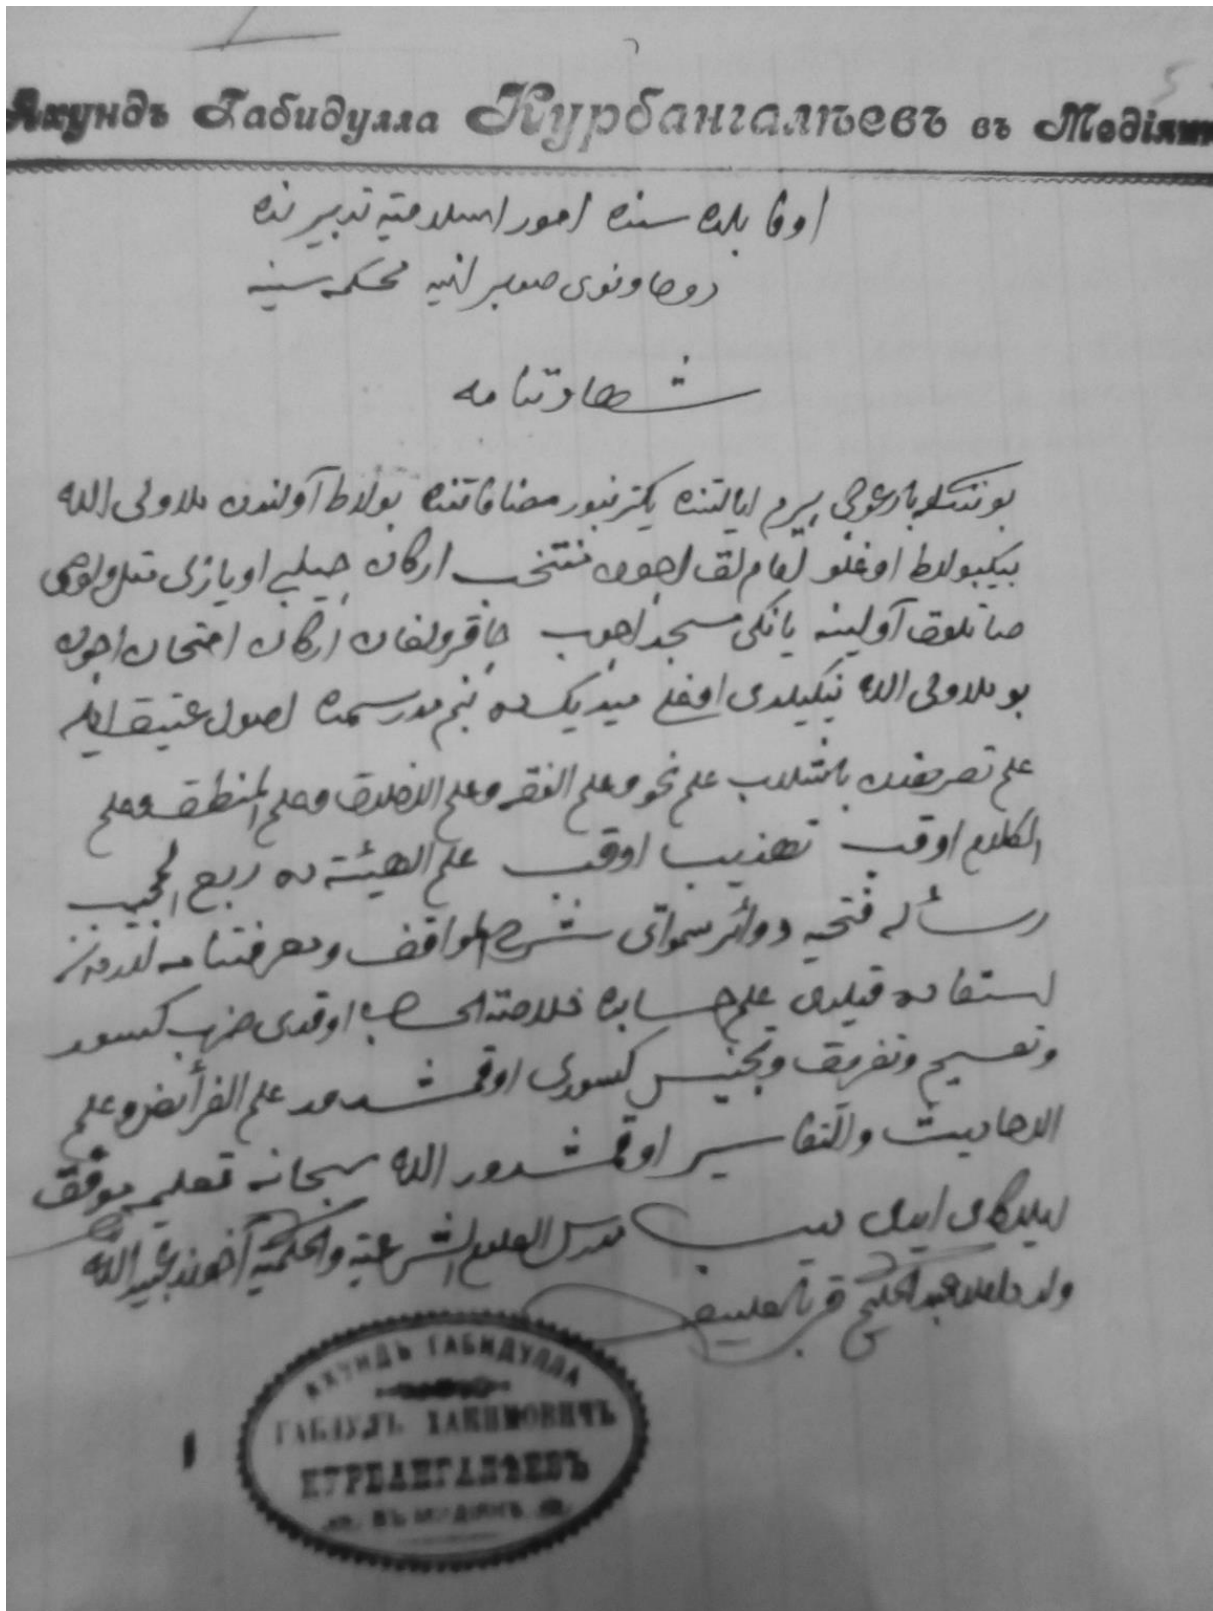 Ахундъ Габидулла Курбангалѣевъ въ Медіяк
اوفا بلده سنده امور اسلامیه تدبیرنده
روحاونوی صوبرانیه محکمه سنیه
شهادتنامه
پیرم ایالتنده یکترنبور مضافاتنده بولاط آولندن ملا ولی الله
بیکبولاط اوغلو امام لق اچون منتخب ارکان چیلیبی اویازی
آولینه یانکی مسجد اچون ارکان امتحان اچون
بو ملا ولی الله بیکبلدی اوغلی میدیک ده بنم مدرسمده اصول عتیق ایله
علم تصریفدن باشلاب علم نحو وعلم الفقه وعلم الاخلاق وعلم المنطق وعلم
الكلام اوقب تهذیب اوقب علم الهیئة ده ربع المجیب
رسأله فتحیه دوائر سمواتی شرح المواقف ومعرفتنامه لردن
استفاده قیلدی علم حسابده خلاصة الحساب اوقدی ضرب کسور
وتقسیم وتفریق وتجنیس کسوری اوقمشدر علم الفرأیض وعلم
الاحادیث والتفاسیر اوقمشدور الله سبحانه تعلیمه موفق
ایلاکای ایدی دیب مدرس العلوم الشرعیة والحکمیة آخوند عبید الله
ولد داملا عبد الحکیم قربانعلییف
АХУНДЪ ГАБИДУЛЛА
ГАБДУЛЪ ХАКИМОВИЧЪ
КУРБАНГАЛѢЕВЪ
ВЪ МѢДІЯКѢ